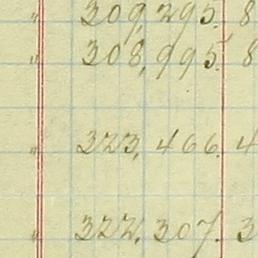 " 309,295. 8
" 308,995. 8
" 323,466. 4
" 322,307. 3